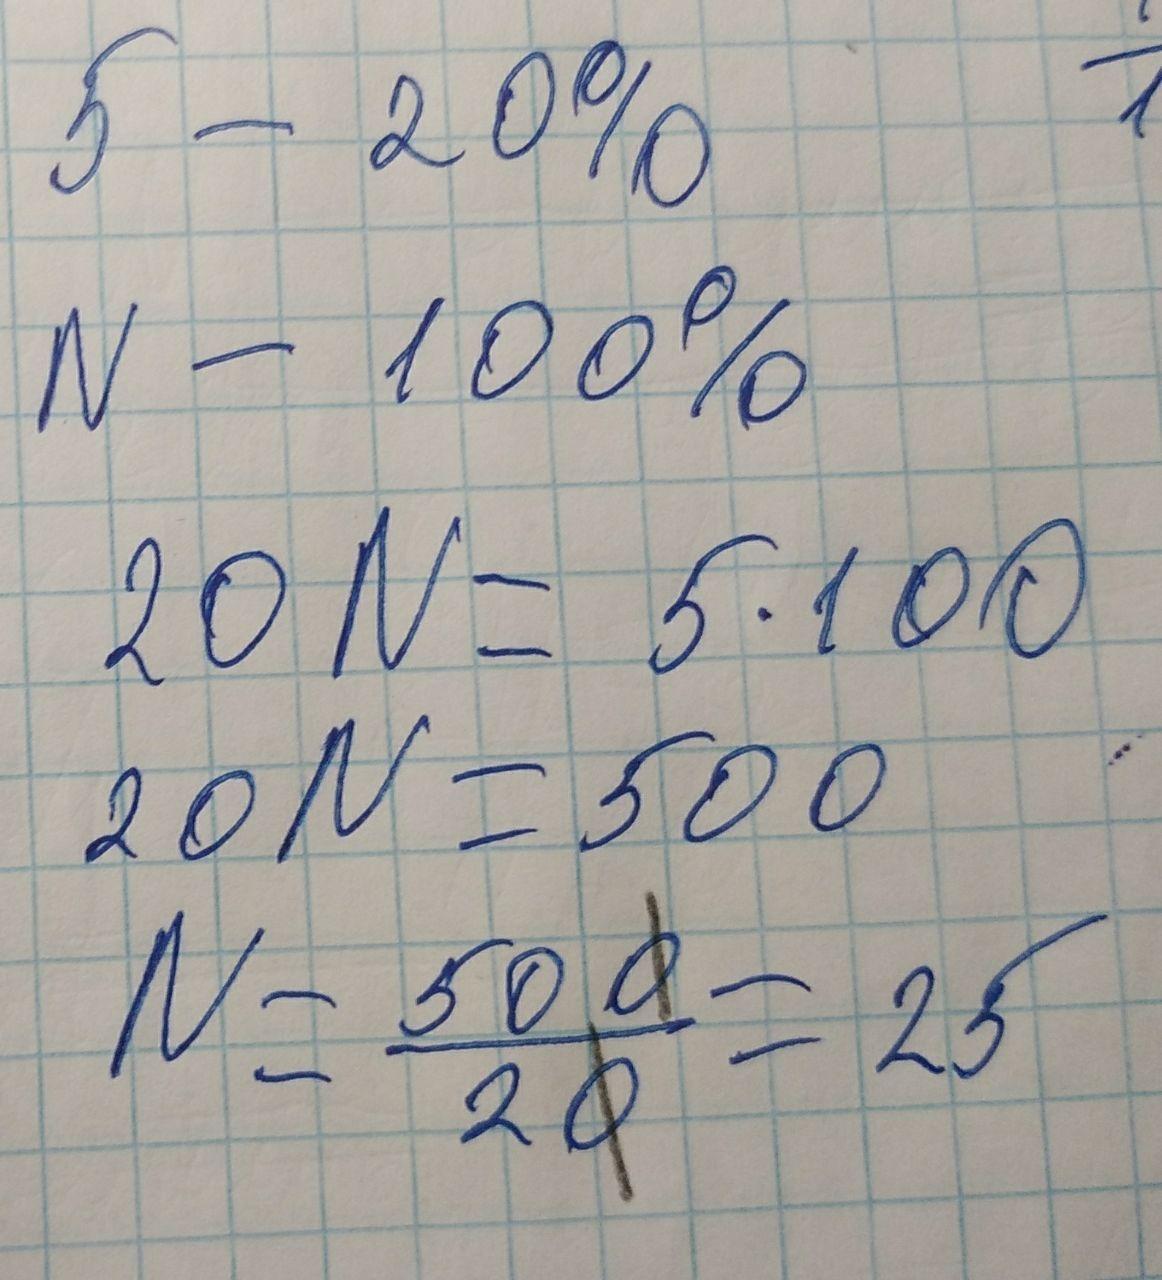 5 - 20%
N - 100%
20N = 5·100
20N = 500
N = 500/20 = 25